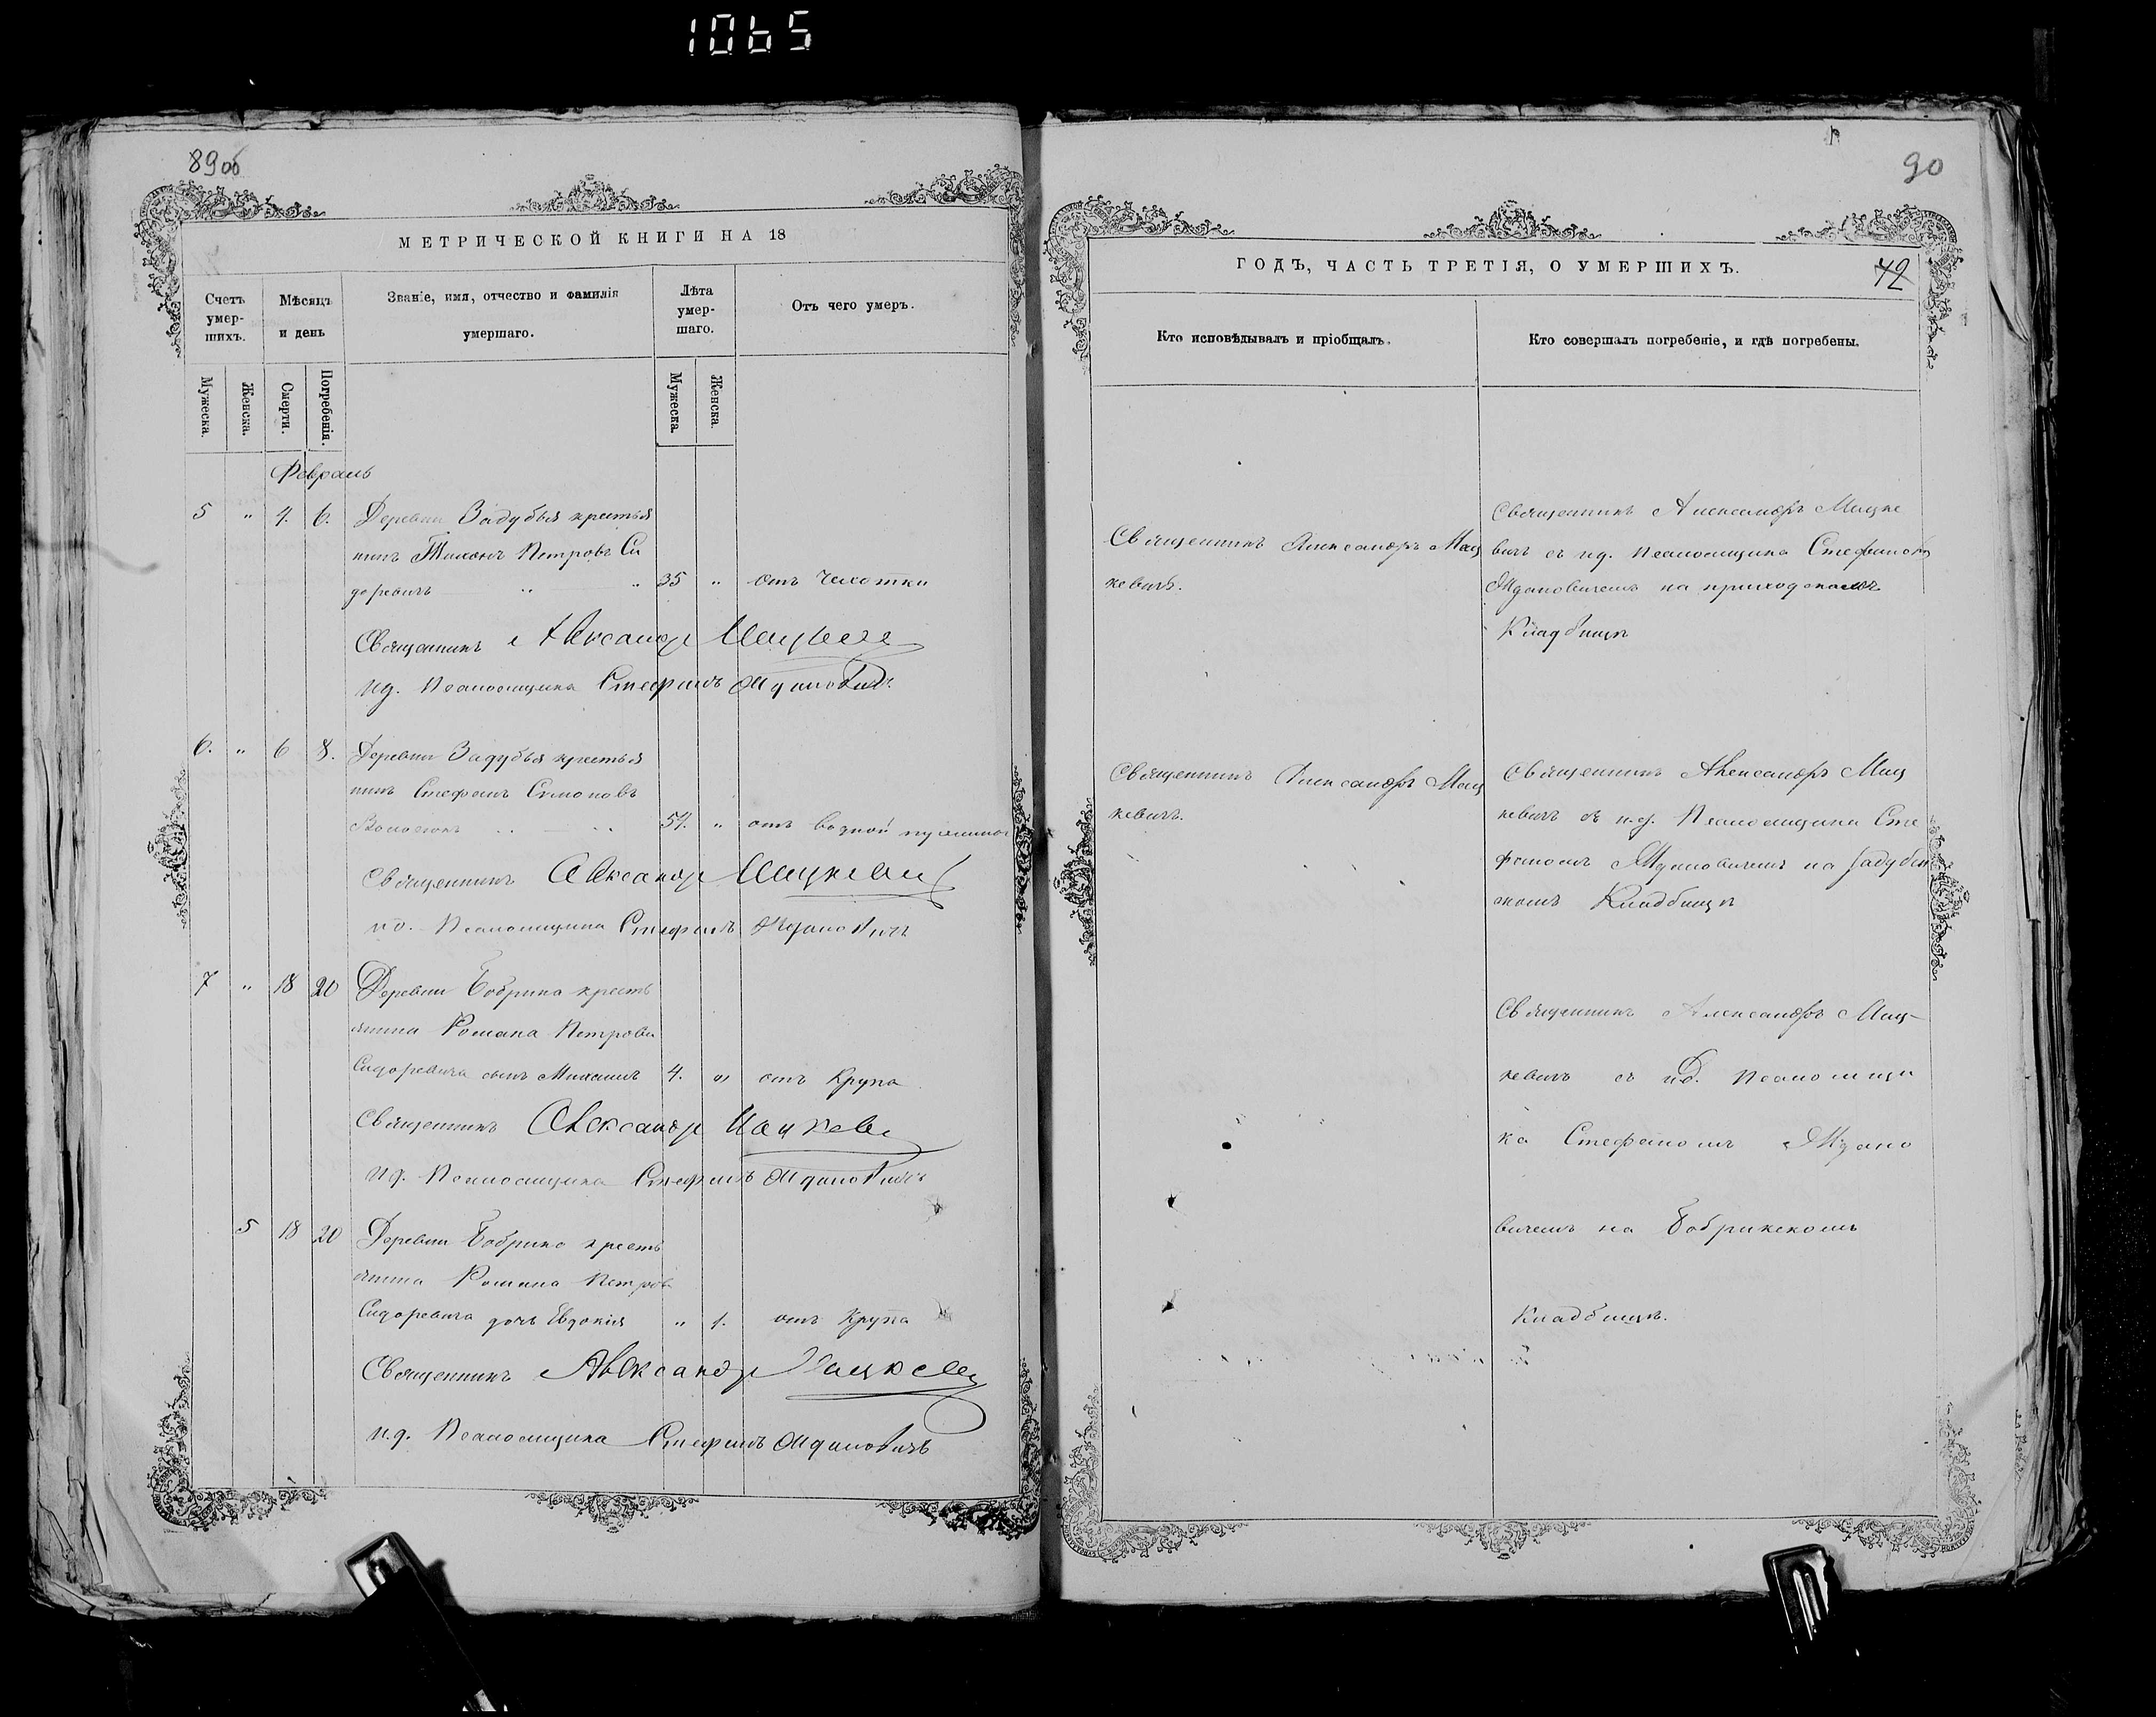 1065
89об
МЕТРИЧЕСКОЙ КНИГИ НА 18
Счетъ умер-шихъ.
Мѣсяцъ и день
Званіе, имя, отчество и фамилія умершаго.
Лѣта умер-шаго.
Отъ чего умеръ.
Мужеска.
Женска.
Смерти.
Погребенія.
Мужеска.
Женска.
Февраль
5 " 4. 6. Деревни Задубья крестья
нинъ Тихонъ Петровъ Си
доревичъ " " 35 " отъ чахотки
Священникъ Александр Мацкевич
ид. Псаломщика Стефанъ Ждановичъ
6. " 6 8. Деревни Задубья крестья
нинъ Стефанъ Симоновъ
54. " отъ водной
Священникъ Александр Мацкевич
ид. Псаломщика Стефанъ Ждановичъ
7 " 18 20 Деревни Бобрика кресть
янина Романа Петрова
Сидоревича сынъ Михаилъ 4. " отъ Крупа
Священникъ Александр Мацкевич
ид. Псаломщика Стефанъ Ждановичъ
5 18 20 Деревни Бобрика кресть
янина Романа Петрова
Сидоревича дочь Евдокія " 1. отъ Крупа
Священникъ Александр Мацкевич
и.д. Псаломщика Стефанъ Ждановичъ
90
ГОДЪ, ЧАСТЬ ТРЕТІЯ, О УМЕРШИХЪ.
42
Кто исповѣдывалъ и пріобщалъ.
Кто совершалъ погребеніе, и гдѣ погребены.
Священникъ Александръ Мац
кевичъ.
Священникъ Александръ Мацке
вичъ съ ид. Псаломщика Стефаномъ
Ждановичемъ на приходскомъ
Кладбищѣ
Священникъ Александръ Мац
кевичъ.
Священникъ Александръ Мац
кевичъ съ и.д. Псаломщика Сте
фаномъ Ждановичемъ на Задубен
скомъ Кладбищѣ
Священникъ Александръ Мац-
кевичъ съ ид. Псаломщи
ка Стефаномъ Ждано
вичемъ на Бобрикскомъ
Кладбищѣ.